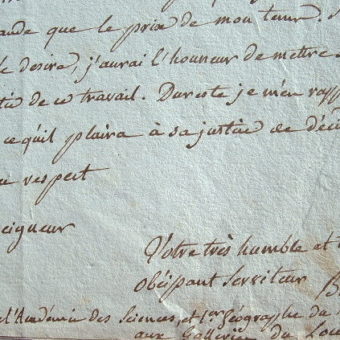 ande que le prix de mon tems.
le desire, j'aurai l'honneur de mettre
de ce travail. Dureste je m'en rapp
ce qu'il plaira à sa justice de déci
respect
eigneur
Votre très humble et t
obéissant serviteur
B
de l'Académie des Sciences, et 1er Géographe du
aux Galleries du Lou